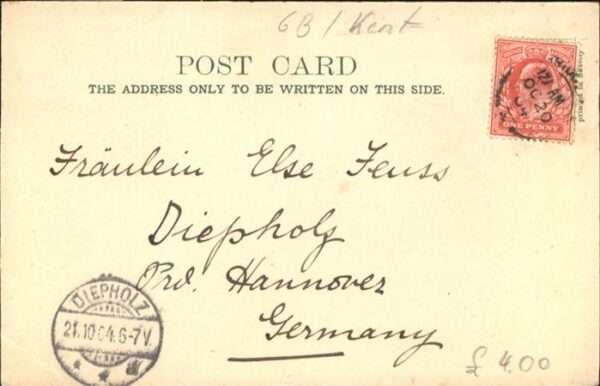 GB / Kent
POST CARD
THE ADDRESS ONLY TO BE WRITTEN ON THIS SIDE.
12 AM
OC 20
04
ONE PENNY
printed in Saxony
Fräulein Else Feuss
Diepholz
Prd. Hannover
Germany
DIEPHOLZ
21.10 04.6-7V.
£ 4.00